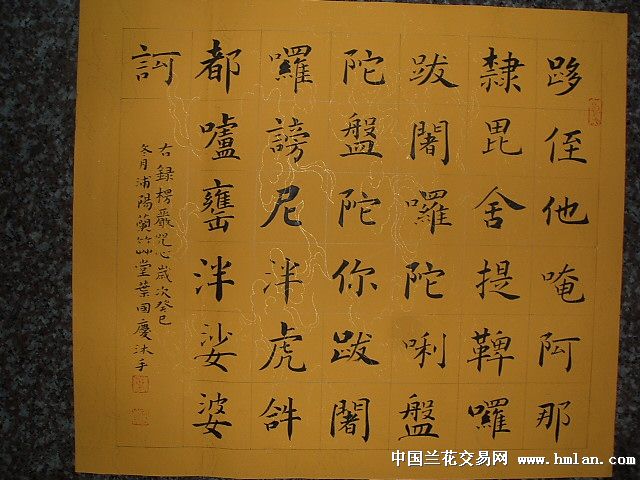 跢侄他唵阿那
隸毘舍提鞞囉
跋闍囉陀唎盤
陀盤陀你跋闍
囉謗尼泮虎𤙖
都嚧罋泮娑婆
訶
右録楞嚴咒心歲次癸巳
冬月浦陽蘭竹艸堂葉国慶沐手
中国兰花交易网 www.hmlan.com